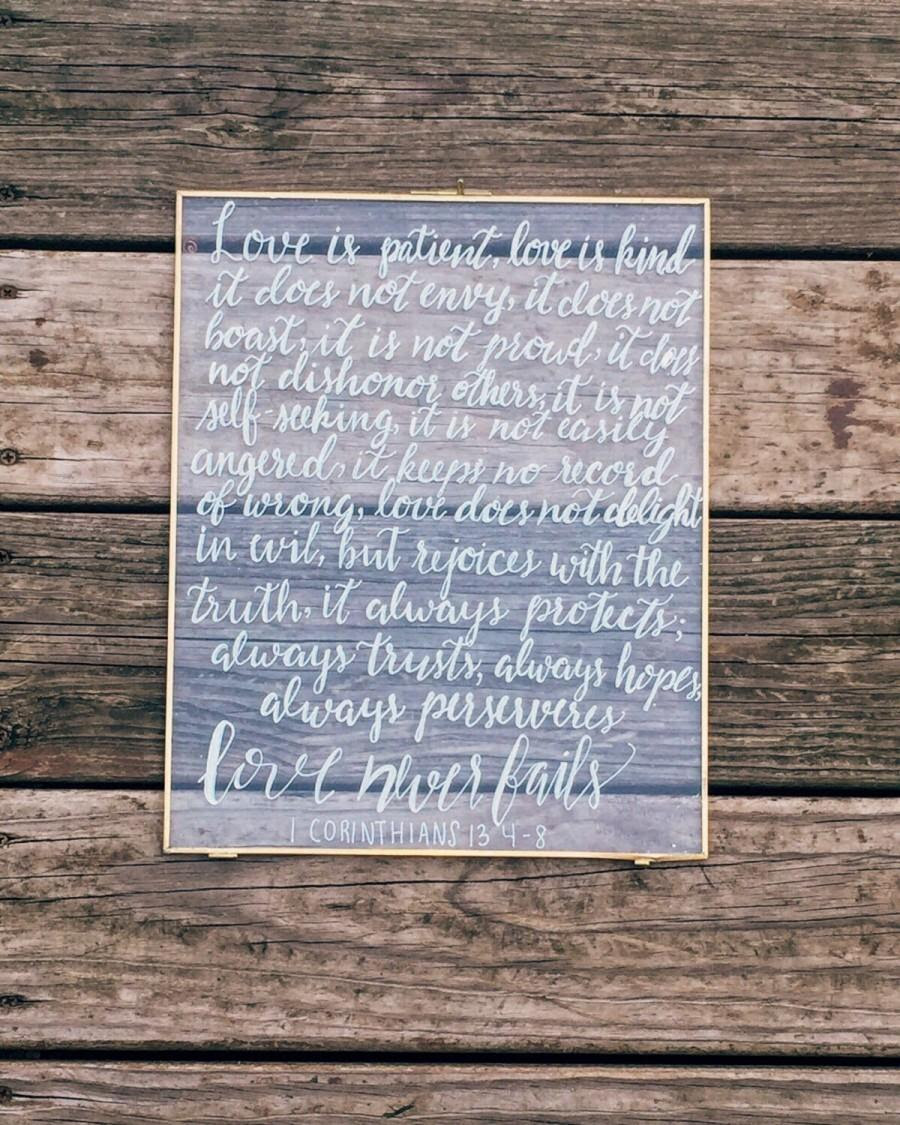 Love is patient, love is kind
it does not envy, it does not
boast, it is not proud, it does
not dishonor others, it is not
self-seeking, it is not easily
angered, it keeps no record
of wrong, love does not delight
in evil, but rejoices with the
truth, it always protects;
always trusts, always hopes,
always perserveres
love never fails
1 CORINTHIANS 13 4-8